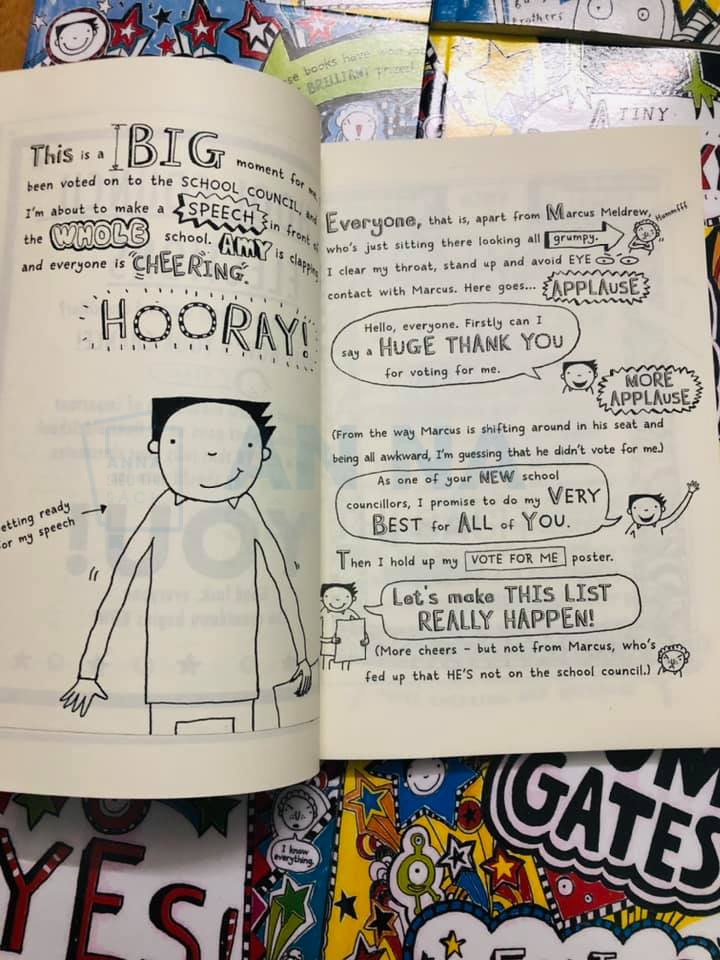 brothers
these books have won
BRILLIANT prizes!
A TINY
This is a BIG moment for me.
been voted on to the SCHOOL COUNCIL, and
I'm about to make a SPEECH in front of
the WHOLE school. AMY is clapping
and everyone is CHEERING.
HOORAY!
getting ready
for my speech
Everyone, that is, apart from Marcus Meldrew,
Hummfff
who's just sitting there looking all grumpy.
I clear my throat, stand up and avoid EYE
contact with Marcus. Here goes... APPLAUSE
Hello, everyone. Firstly can I
say a HUGE THANK YOU
for voting for me.
MORE
APPLAUSE
(From the way Marcus is shifting around in his seat and
being all awkward, I'm guessing that he didn't vote for me.)
As one of your NEW school
councillors, I promise to do my VERY
BEST for ALL of YOU.
Then I hold up my VOTE FOR ME poster.
Let's make THIS LIST
REALLY HAPPEN!
(More cheers – but not from Marcus, who's
fed up that HE'S not on the school council.)
YES!
I know
everything.
GATES